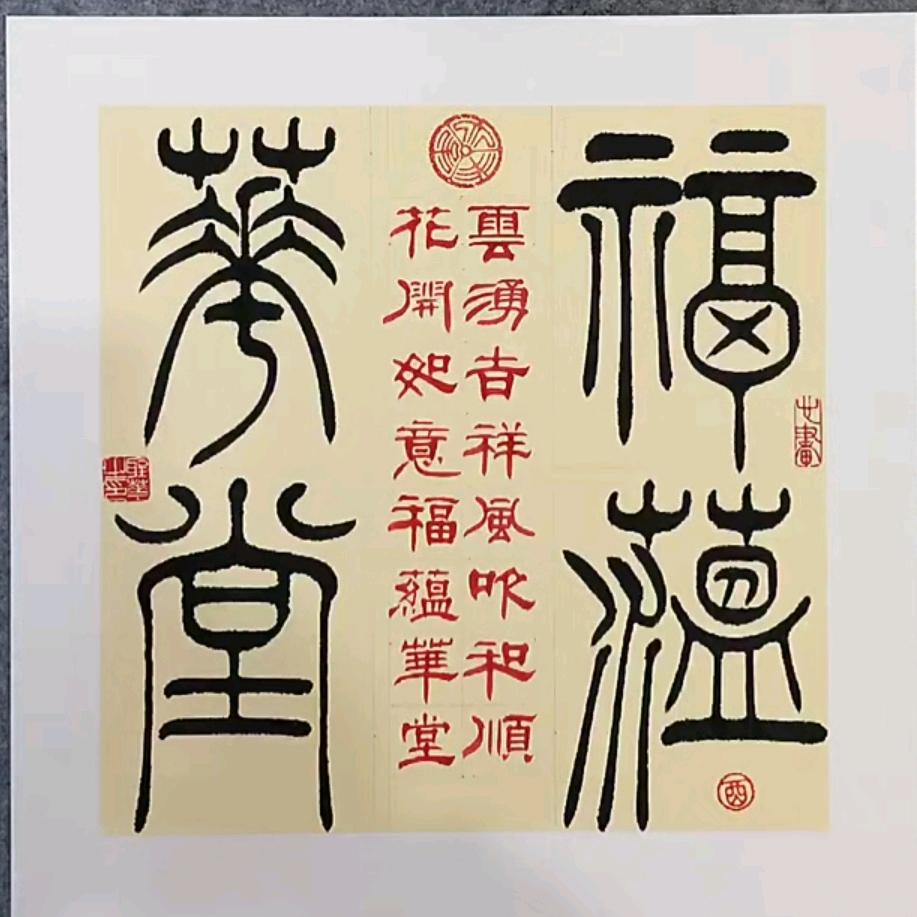 福薀
雲湧吉祥風吹和順
花開如意福蘊華堂
華堂